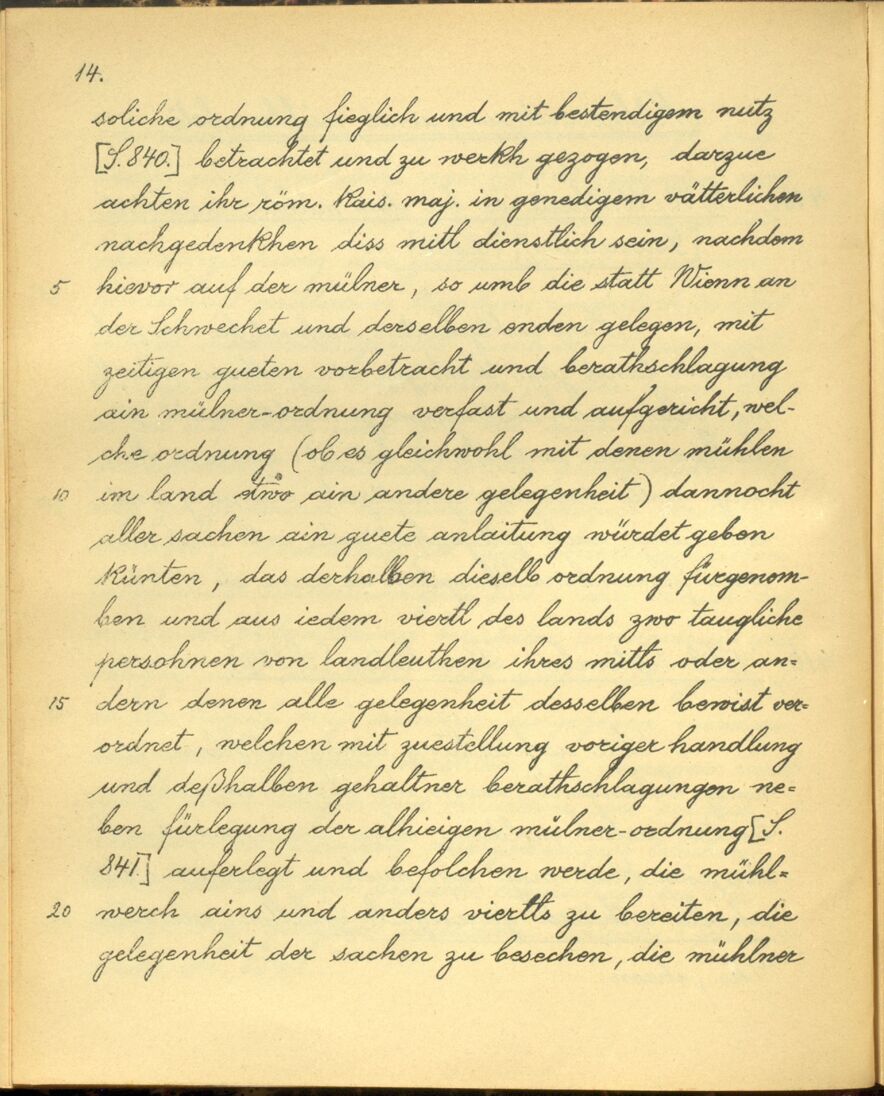 14.
soliche ordnung fieglich und mit bestendigem nutz
[S. 840.] betrachtet und zu werkh gezogen, darzue
achten ihr röm. kais. maj. in genedigem vätterlichen
nachgedenkhen diss mitl dienstlich sein, nachdem
5 hievor auf der mülner, so umb die statt Wienn an
der Schwechet und derselben enden gelegen, mit
zeitigen gueten vorbetracht und berathschlagung
ain mülner-ordnung verfast und aufgericht, wel-
che ordnung (ob es gleichwohl mit denen mühlen
10 im land etwo ain andere gelegenheit) dannocht
aller sachen ain guete anlaitung würdet geben
künten, das derhalben dieselb ordnung fürgenom-
ben und aus iedem viertl des lands zwo taugliche
persohnen von landleuthen ihres mitls oder an=
15 dern denen alle gelegenheit desselben bewist ver=
ordnet, welchen mit zuestellung voriger handlung
und deßhalben gehaltner berathschlagungen ne=
ben fürlegung der alhieigen mülner-ordnung [S.
841.] auferlegt und befolchen werde, die mühl=
20 werch ains und anders viertls zu bereiten, die
gelegenheit der sachen zu besechen, die mühlner